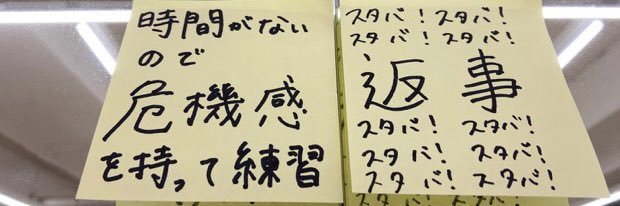 時間がない
ので
危機感
を持って練習
スタバ！スタバ！
スタバ！スタバ！
返事
スタバ！スタバ！
スタバ！スタバ！
スタバ！スタバ！